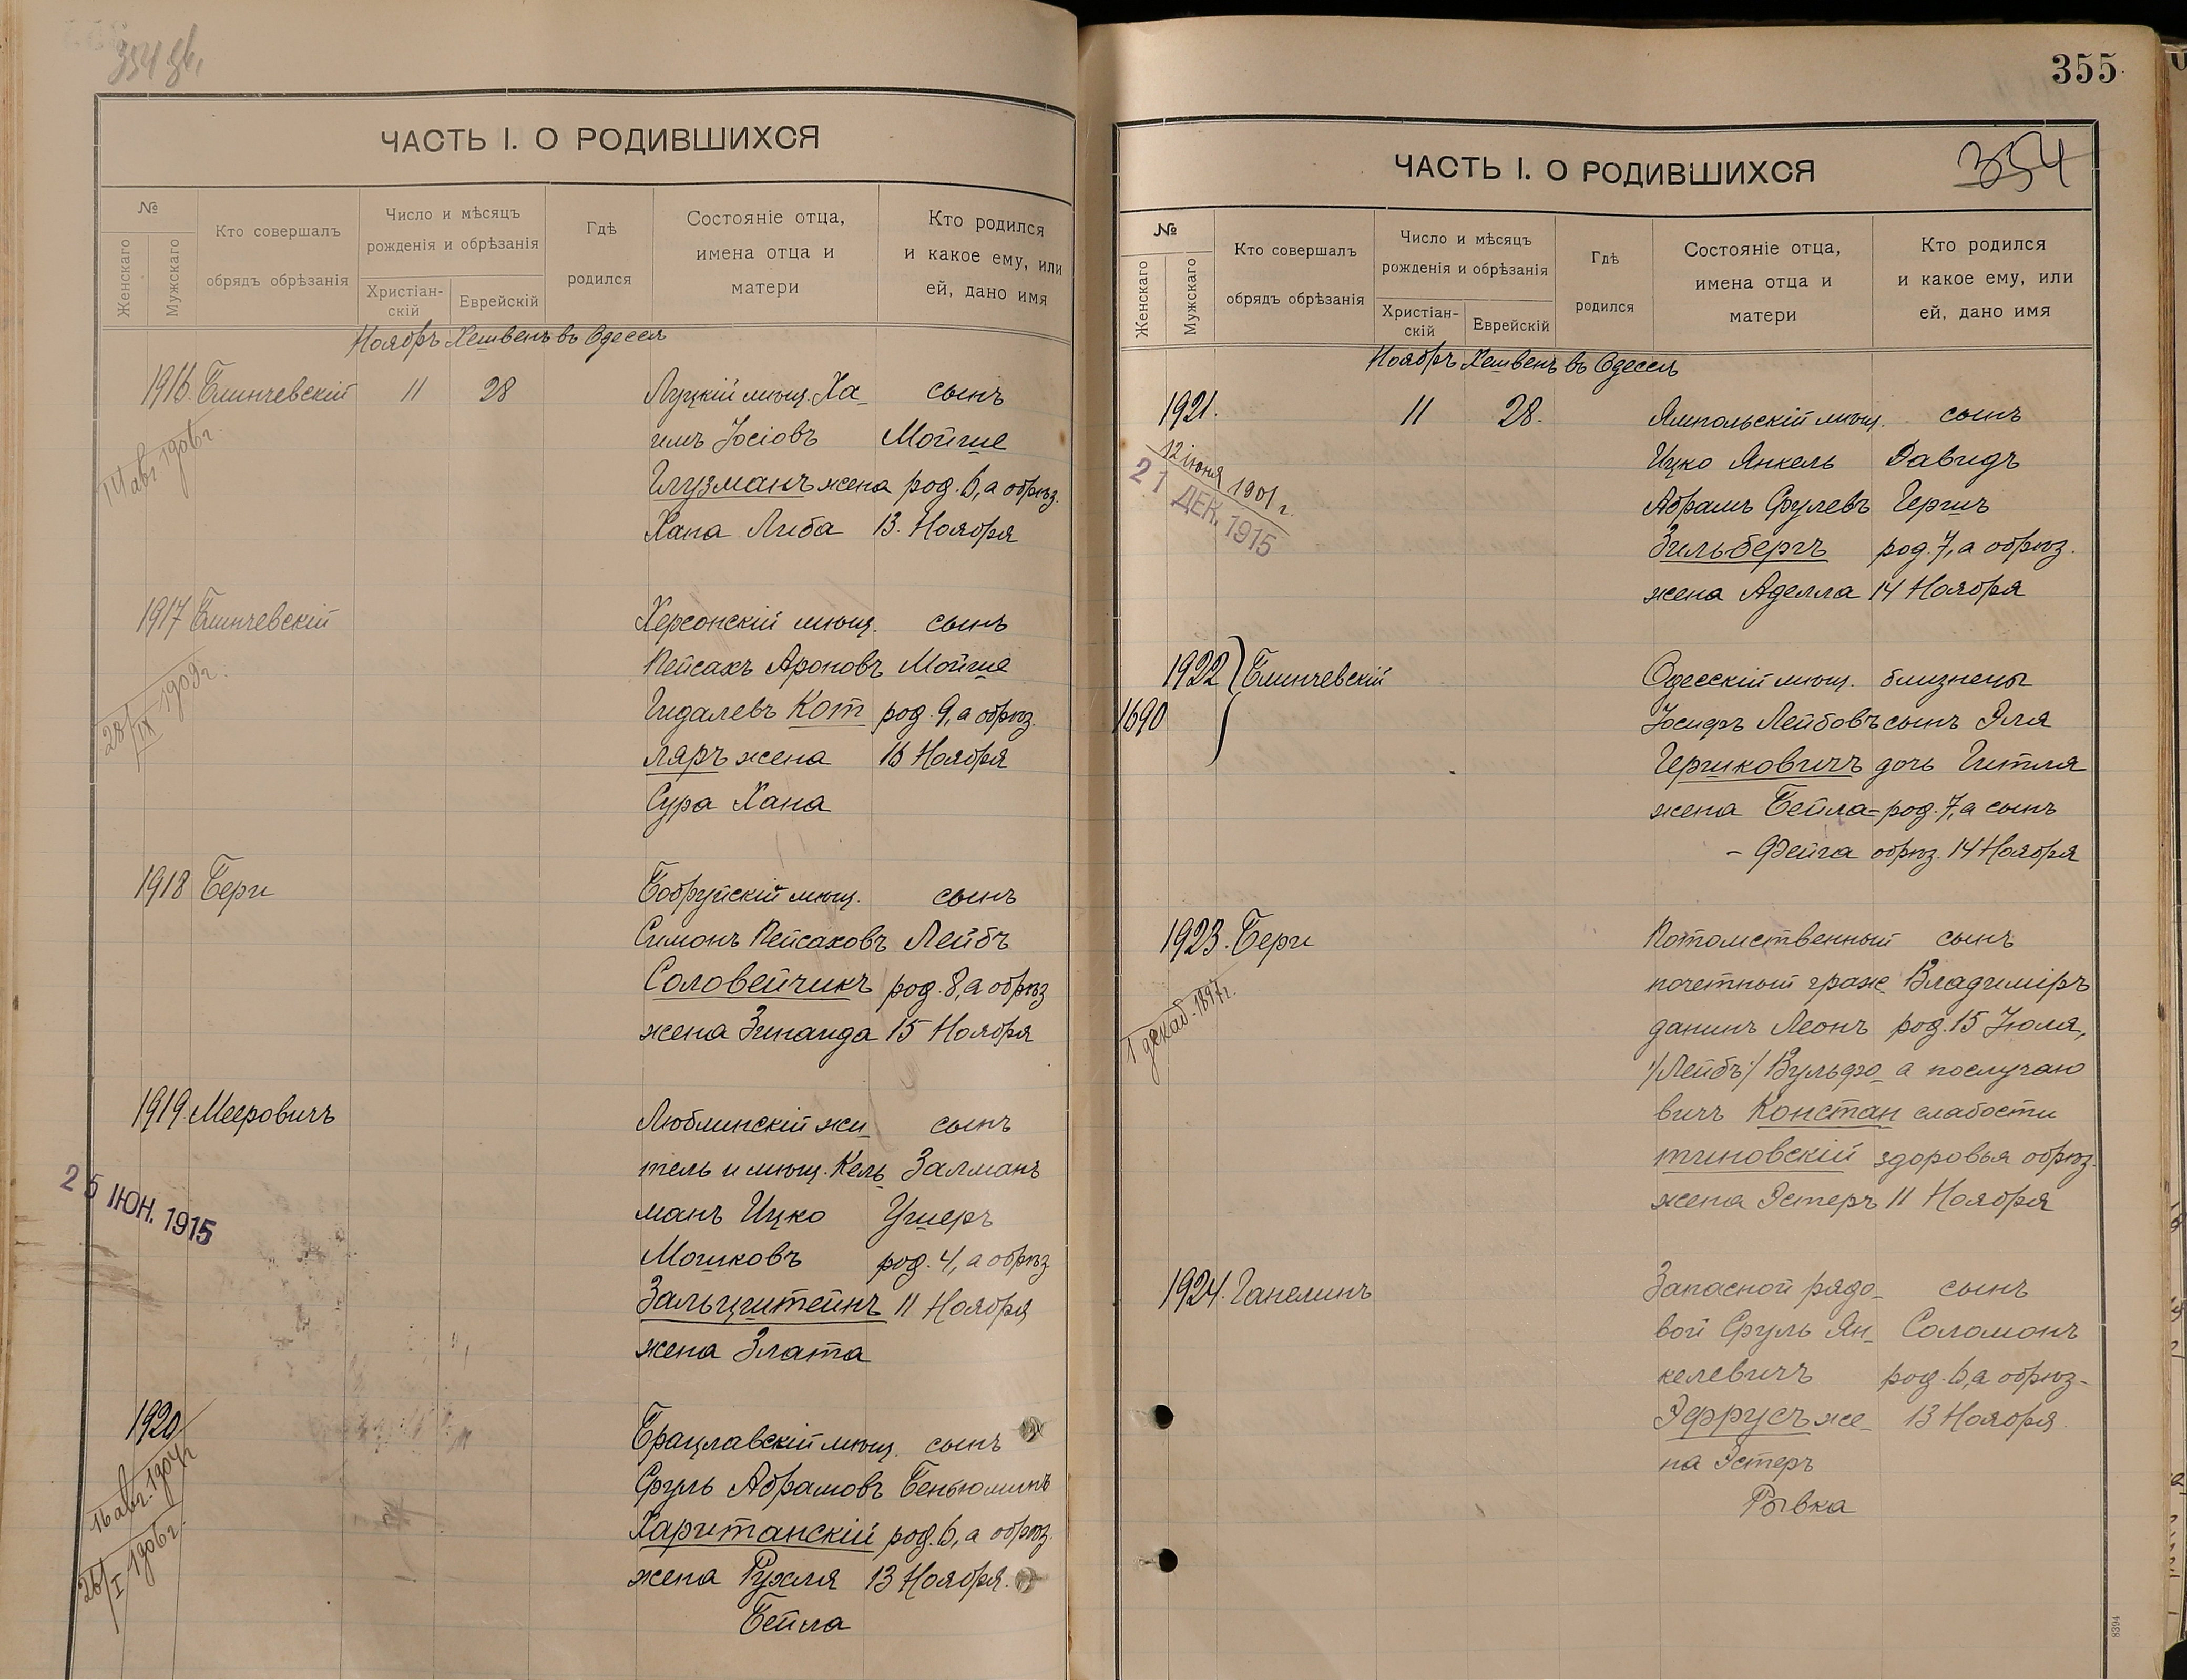 354 об.
ЧАСТЬ I. О РОДИВШИХСЯ
№
Женскаго
Мужскаго
Кто совершалъ
обрядъ обрѣзанія
Число и мѣсяцъ
рожденія и обрѣзанія
Христіан-
скій
Еврейскій
Гдѣ
родился
Состояніе отца,
имена отца и
матери
Кто родился
и какое ему, или
ей, дано имя
Ноябрь Хешвенъ въ Одессѣ
1916. Блинчевскій 11 28 Луцкій мѣщ. Ха- сынъ
14 авг 1906 г. имъ Іосіовъ Мойше
Глузманъ жена род. 6, а обрѣз.
Хана Либа 13. Ноября
1917 Блинчевскій Херсонскій мѣщ. сынъ
Пейсахъ Ароновъ Мойше
28/IX 1909 г. Гидалевъ Кот род. 9, а обрѣз.
ляръ жена 16 Ноября
Сура Хана
1918 Бери Бобруйскій мѣщ. сынъ
Симонъ Пейсаховъ Лейбъ
Соловейчикъ род. 8, а обрѣз
жена Зинаида 15 Ноября
1919. Мееровичъ Люблинскій жи- сынъ
тель и мѣщ. Кель- Залманъ
25 ІЮН. 1915 манъ Ицко Ушеръ
Мошковъ род. 4, а обрѣз
Зальцштейнъ 11 Ноября
жена Злата
1920 Брацлавскій мѣщ. сынъ
16 авг. 1904 г Сруль Абрамовъ Беньюминъ
26/I 1906 г. Хаританскій род. 6, а обрѣз.
жена Рухля 13 Ноября.
Бейла
355
354
ЧАСТЬ I. О РОДИВШИХСЯ
№
Женскаго
Мужскаго
Кто совершалъ
обрядъ обрѣзанія
Число и мѣсяцъ
рожденія и обрѣзанія
Христіан-
скій
Еврейскій
Гдѣ
родился
Состояніе отца,
имена отца и
матери
Кто родился
и какое ему, или
ей, дано имя
Ноябрь Хешвенъ въ Одессѣ
1921. 11 28. Ямпольскій мѣщ. сынъ
12 іюня 1901 г. Ицко Янкель Давидъ
21 ДЕК. 1915 Абрамъ Срулевъ Гершъ
Зильбергъ род. 7, а обрѣз.
жена Аделла 14 Ноября
1922 } Блинчевскій Одесскій мѣщ. близнецы
1690 Іосифъ Лейбовъ сынъ Эля
Гершковичъ дочь Гитля
жена Бейла- род. 7, а сынъ
- Фейга обрѣз. 14 Ноября
1923. Бери Потомственный сынъ
почетный граж- Владиміръ
1 декаб. 1897 г. данинъ Леонъ род. 15 Іюля,
/Лейбъ/ Вульфо- а послучаю
вичъ Констан слабости
тиновскій здоровья обрѣз.
жена Эстеръ 11 Ноября
1924. Ганелинъ Запасной рядо- сынъ
вой Сруль Ян- Соломонъ
келевичъ род. 6, а обрѣз-
Эфрусъ же- 13 Ноября.
на Эстеръ
Рывка
8394